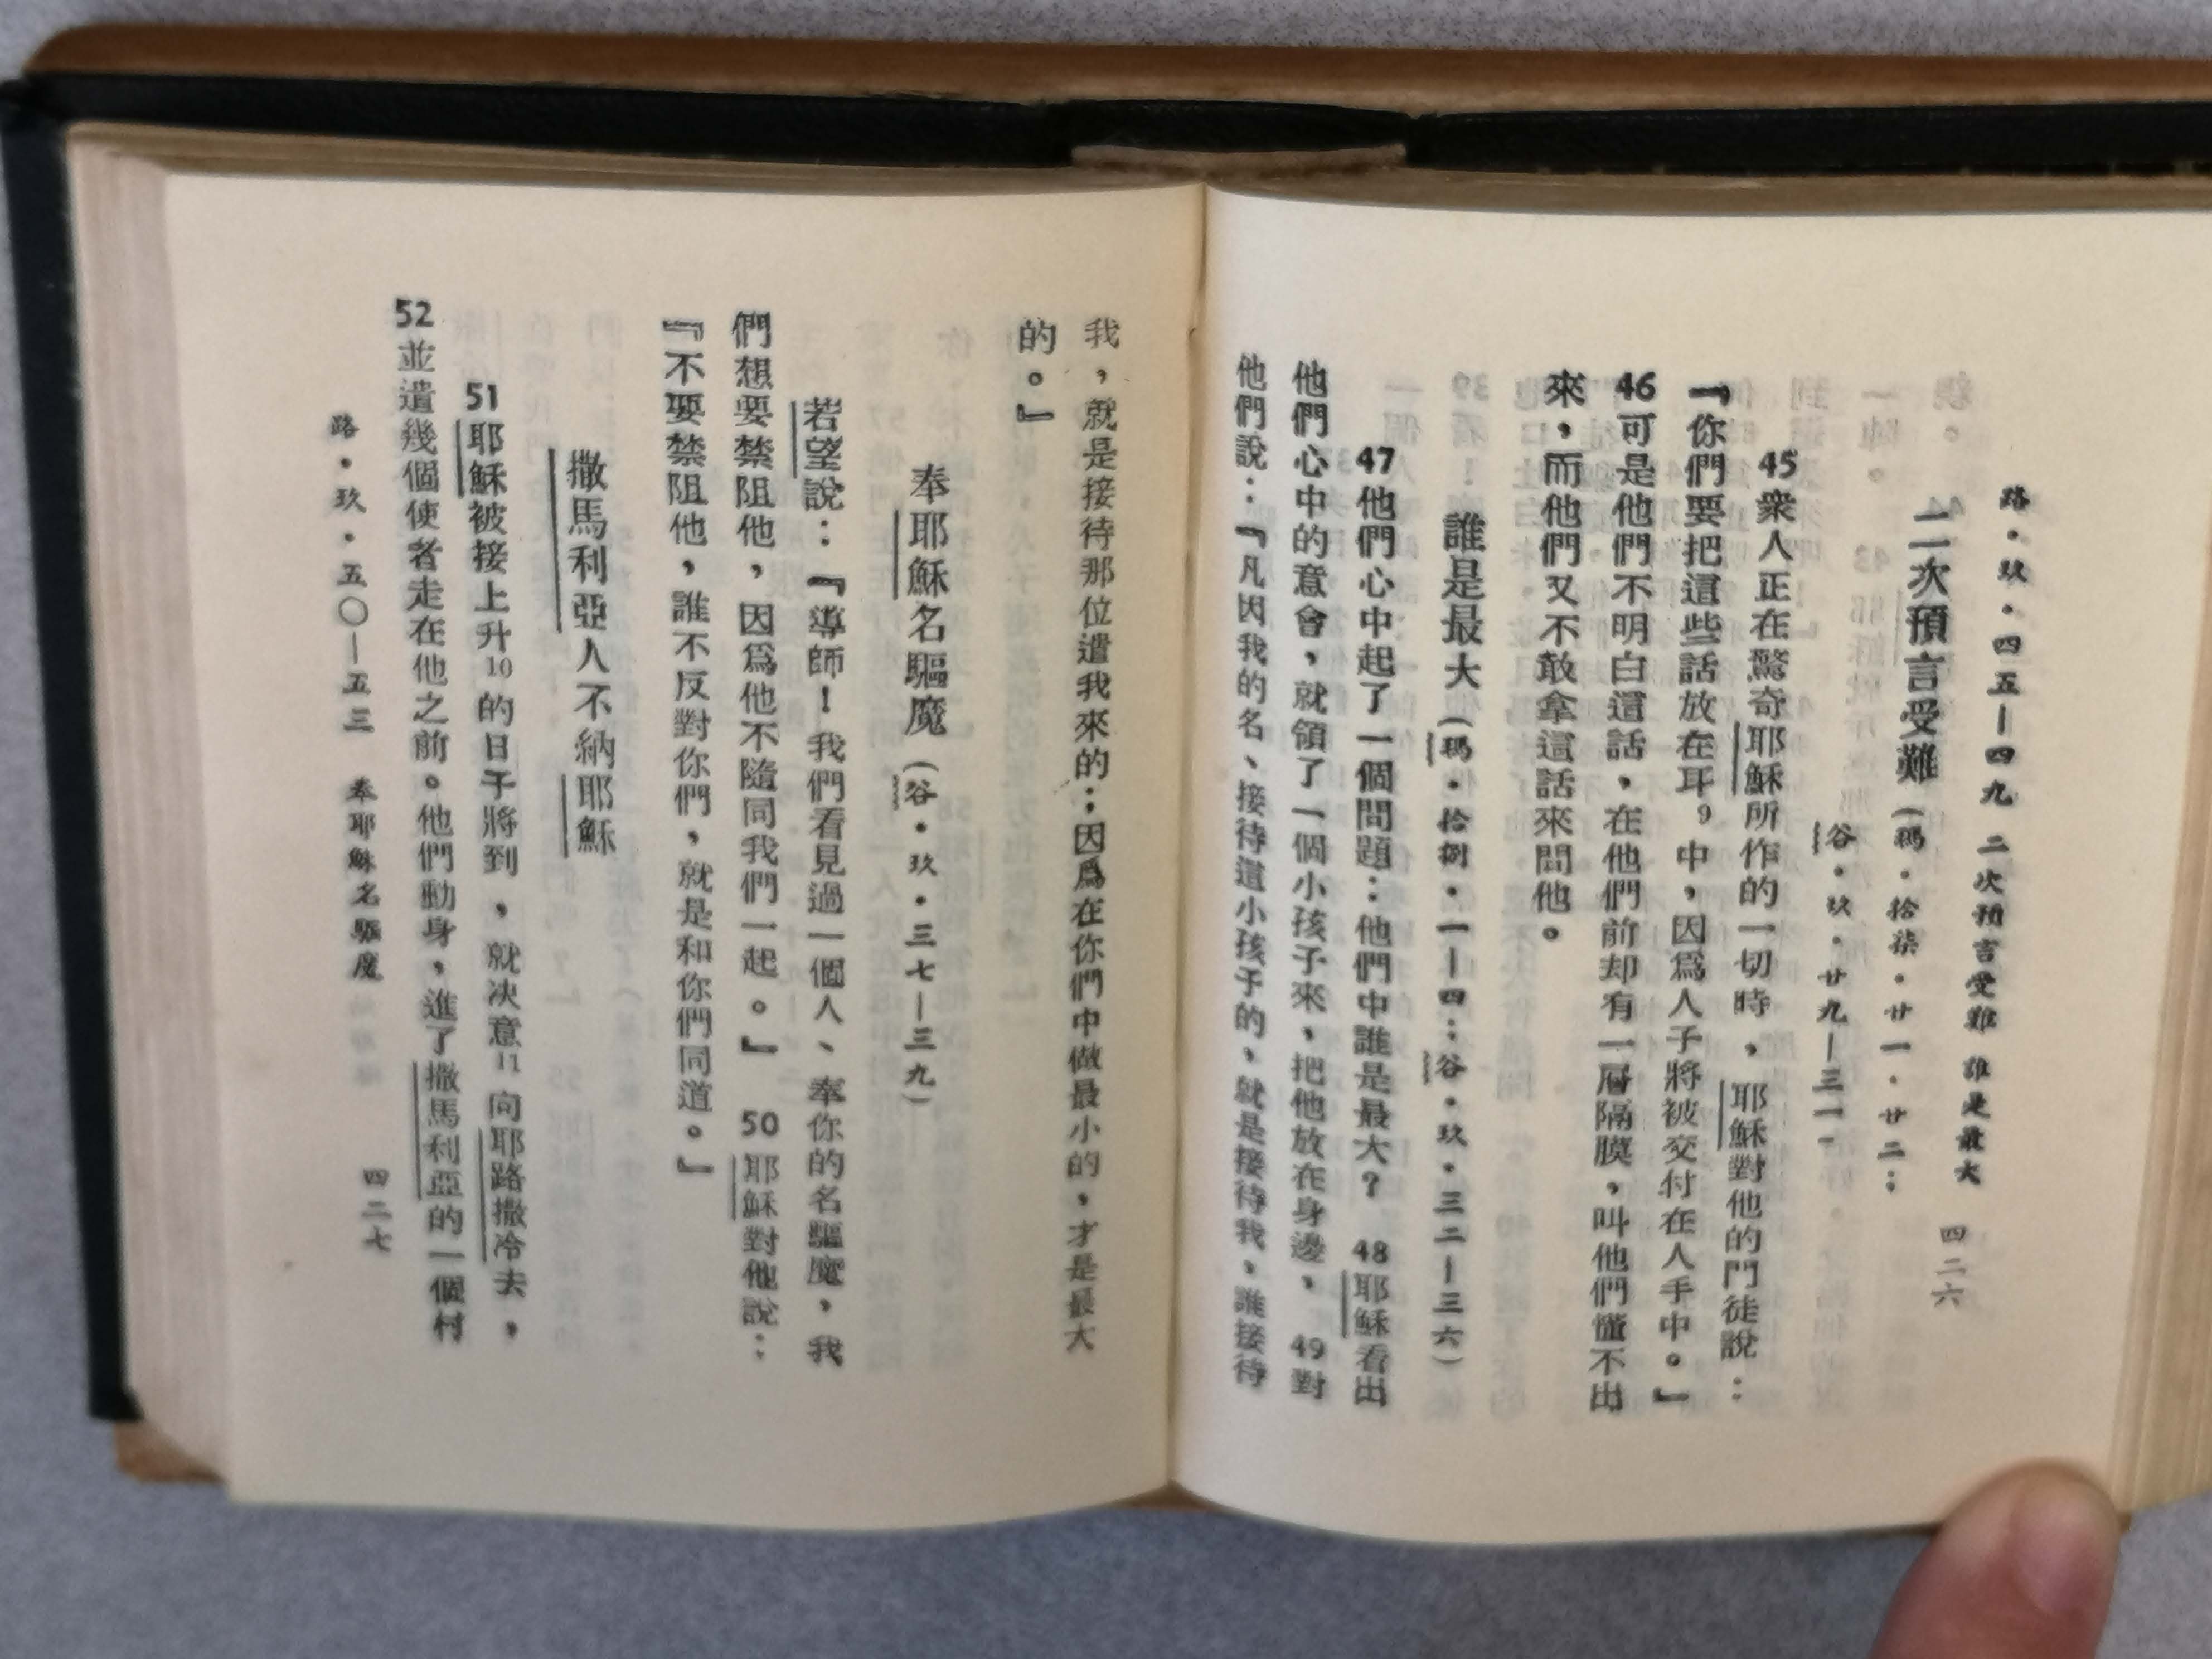 路・玖・四五—四九 二次預言受難 誰是最大 四二六
二次預言受難(瑪・拾柒・廿一・廿二；
谷・玖・廿九—三一
45衆人正在驚奇耶穌所作的一切時，耶穌對他的門徒說：
『你們要把這些話放在耳9中，因爲人子將被交付在人手中。』
46可是他們不明白這話，在他們前却有一層隔膜，叫他們懂不出
來，而他們又不敢拿這話來問他。
誰是最大(瑪・拾捌・一—四；谷・玖・三二—三六)
47他們心中起了一個問題：他們中誰是最大？ 48耶穌看出
他們心中的意會，就領了一個小孩子來，把他放在身邊， 49對
他們說：『凡因我的名、接待這小孩子的，就是接待我，誰接待
我，就是接待那位遣我來的；因爲在你們中做最小的，才是最大
的。』
奉耶穌名驅魔(谷・玖・三七—三九)
若望說：『導師！我們看見過一個人、奉你的名驅魔，我
們想要禁阻他，因爲他不隨同我們一起。』 50耶穌對他說：
『不要禁阻他，誰不反對你們，就是和你們同道。』
撒馬利亞人不納耶穌
51耶穌被接上升10的日子將到，就決意11向耶路撒冷去，
52並遣幾個使者走在他之前。他們動身，進了撒馬利亞的一個村
路・玖・五〇—五三 奉耶穌名驅魔 四二七